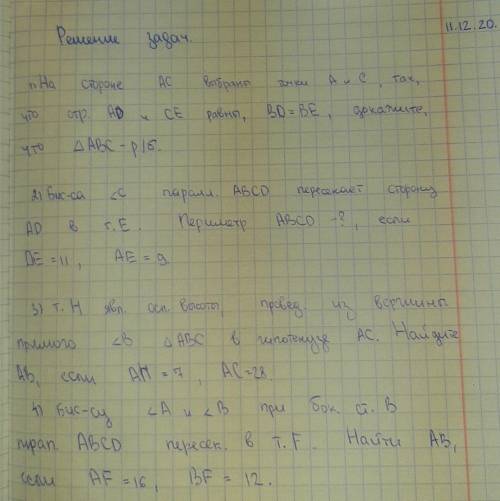 11.12.20.
Решение задач.
1) На стороне AC выбраны точки A и C, так,
что отр. AD и CE равны, BD=BE, докажите,
что △ABC - р/б.
2) Бис-са ∠C паралл. ABCD пересекает сторону
AD в т.E. Периметр ABCD -?, если
DE=11, AE=9
3) т. H явл. осн. высоты, провед. из вершины
прямого ∠B △ABC в гипотенузе AC. Найдите
AB, если AH=7, AC=28.
4) Бис-сы ∠A и ∠B при бок. ст. B
трап. ABCD пересек. в т. F. Найти AB,
если AF=16, BF=12.